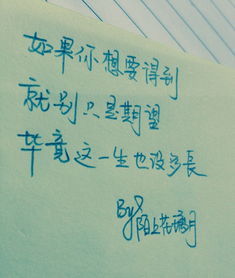 如果你想要得到
就别只是期望
毕竟这一生也没多長
By 陌上花漓月